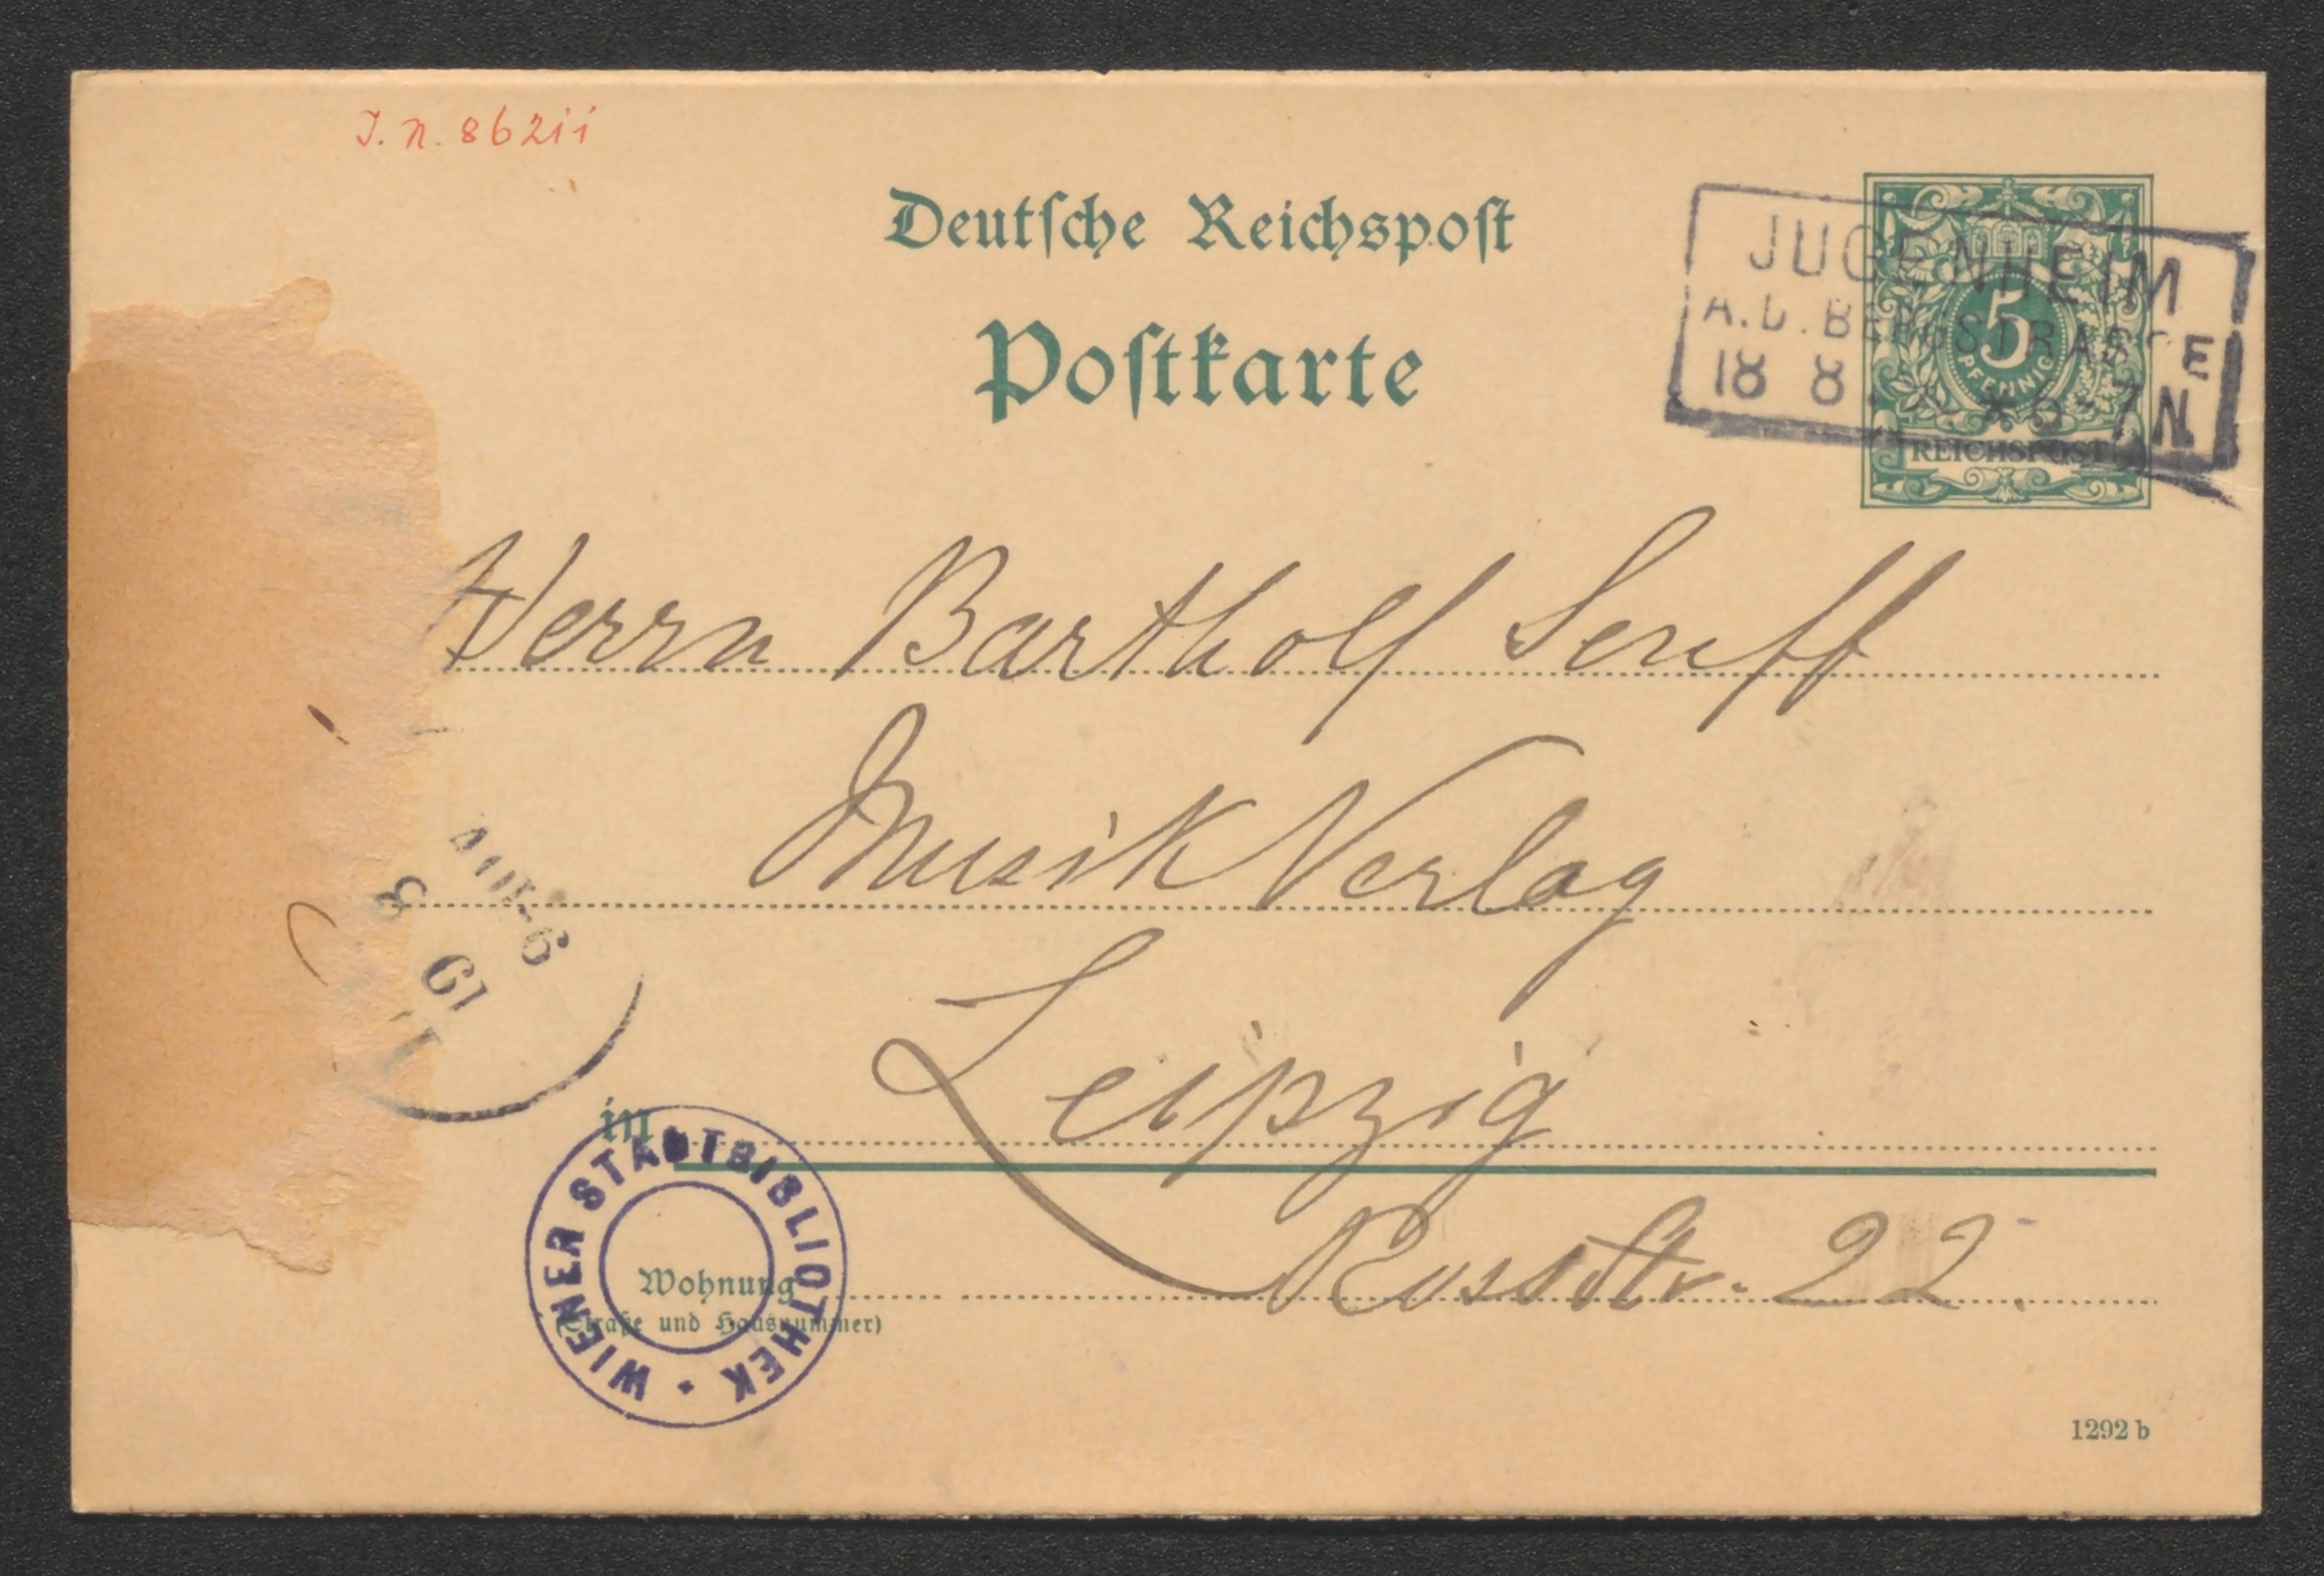 J. N. 86211
Deutsche Reichspost
Postkarte
JUGENHEIM
A.D. BERGSTRASSE
18 8 * 6-7 N
5
PFENNIG
REICHSPOST
Herrn Bartholf Senff
Musik Verlag
Leipzig
in
Russstr. 22.
Wohnung
(Straße und Hausnummer)
WIENER STADTBIBLIOTHEK
19 8
1292 b